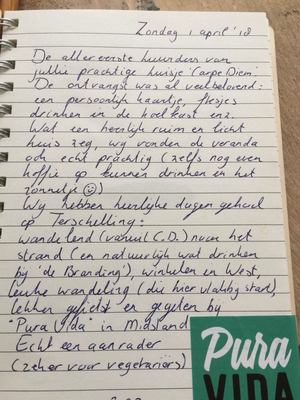 Zondag 1 april '18
De allereerste huurders van
jullie prachtige huisje 'Carpe Diem'.
De ontvangst was al veelbelovend:
een persoonlijk kaartje, flesjes
drinken in de koelkast enz.
Wat een heerlijk ruim en licht
huis zeg, wij vonden de veranda
ook echt prachtig (zelfs nog even
koffie op kunnen drinken in het
zonnetje ☺)
Wij hebben heerlijke dagen gehad
op Terschelling:
wandelend (vanuit C.D.) naar het
strand (en natuurlijk wat drinken
bij 'de Branding'), winkelen in West,
leuke wandeling (die hier vlakbij start),
lekker gefietst en gegeten bij
"Pura Vida" in Midsland
Echt een aanrader
(zeker voor vegetariërs)
Pura
VIDA